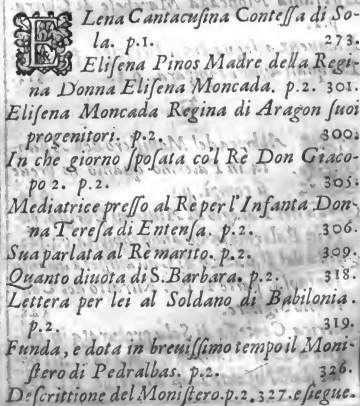 ELena Cantacusina Contessa di So-
la. p.1. 273.
Elisena Pinos Madre della Regi-
na Donna Elisena Moncada. p.2. 301.
Elisena Moncada Regina di Aragon suoi
progenitori. p.2. 300.
In che giorno sposata co'l Rè Don Giaco-
po 2. p.2. 305.
Mediatrice presso al Re per l'Infanta Don-
na Teresa di Entensa. p.2. 306.
Sua parlata al Rè marito. p.2. 309.
Quanto diuota di S. Barbara. p.2. 318.
Lettera per lei al Soldano di Babilonia.
p.2. 319.
Funda, e dota in breuissimo tempo il Moni-
stero di Pedralbas. p.2. 326.
Descrittione del Monistero. p.2. 327. e siegue.